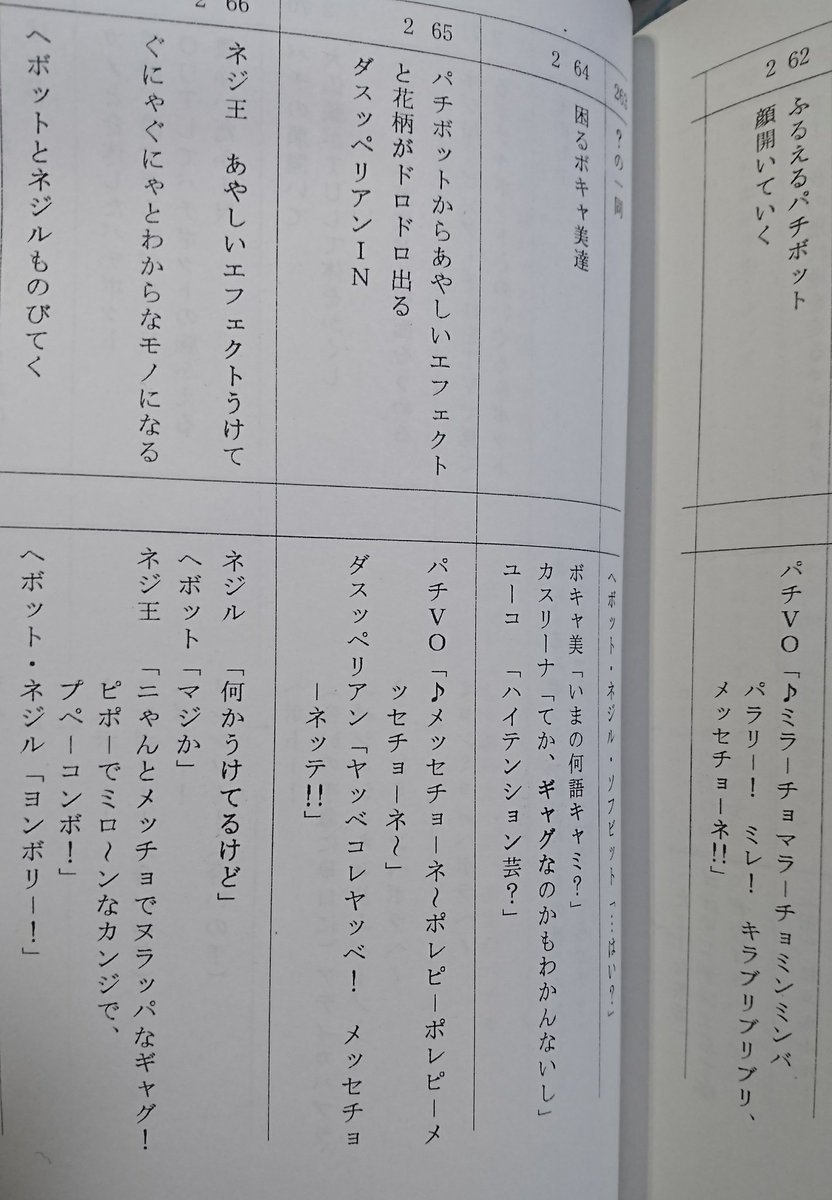 2 62
ふるえるパチボット
顔開いていく
パチVO「♪ミラーチョマラーチョミンミンバ
パラリー！　ミレ！　キラブリブリブリ、
メッセチョーネ!!」
263
？の一同
ヘボット・ネジル・ソフビット「…はい？」
2 64
困るボキャ美達
ボキャ美「いまの何語キャミ？」
カスリーナ「てか、ギャグなのかもわかんないし」
ユーコ　「ハイテンション芸？」
2 65
パチボットからあやしいエフェクト
と花柄がドロドロ出る
ダスッペリアンIN
パチVO「♪メッセチョーネ～ポレピーポレピーメ
ッセチョーネ～」
ダスッペリアン「ヤッベコレヤッベ！　メッセチョ
ーネッテ!!」
2 66
ネジ王　あやしいエフェクトうけて
ぐにゃぐにゃとわからなモノになる
ヘボットとネジルものびてく
ネジル　「何かうけてるけど」
ヘボット「マジか」
ネジ王　「ニャんとメッチョでヌラッパなギャグ！
ピポーでミロ～ンなカンジで、
プペーコンボ！」
ヘボット・ネジル「ヨンボリー！」